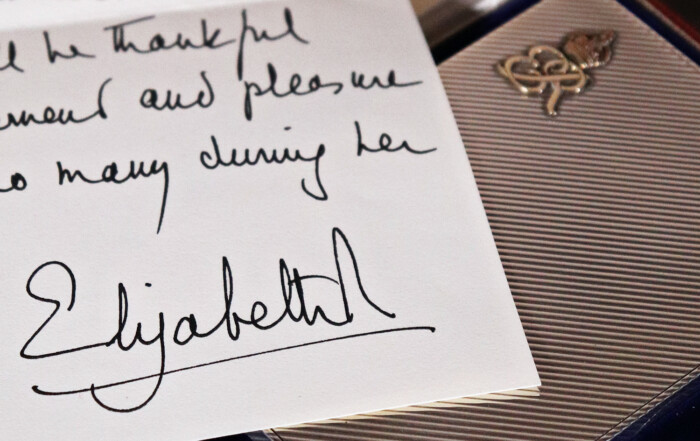 be thankful
and pleasure
many during her
Elizabeth R